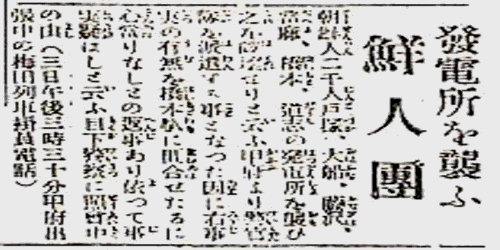 發電所を襲ふ
鮮人團
朝鮮人二千人戸塚、大船、藤沢、
當麻、橋本、道志の發電所を襲ひ
之をせりと云ふ甲府より警官
隊を派遣する事となつた因に右事
実の有無を橋本駅に問合せたるに
心當りなしとの返事あり依つて事
実疑はしと云ふ目下警察に照會中
の由(三日午後三時三十分甲府出
張中の梅田列車掛員電話)